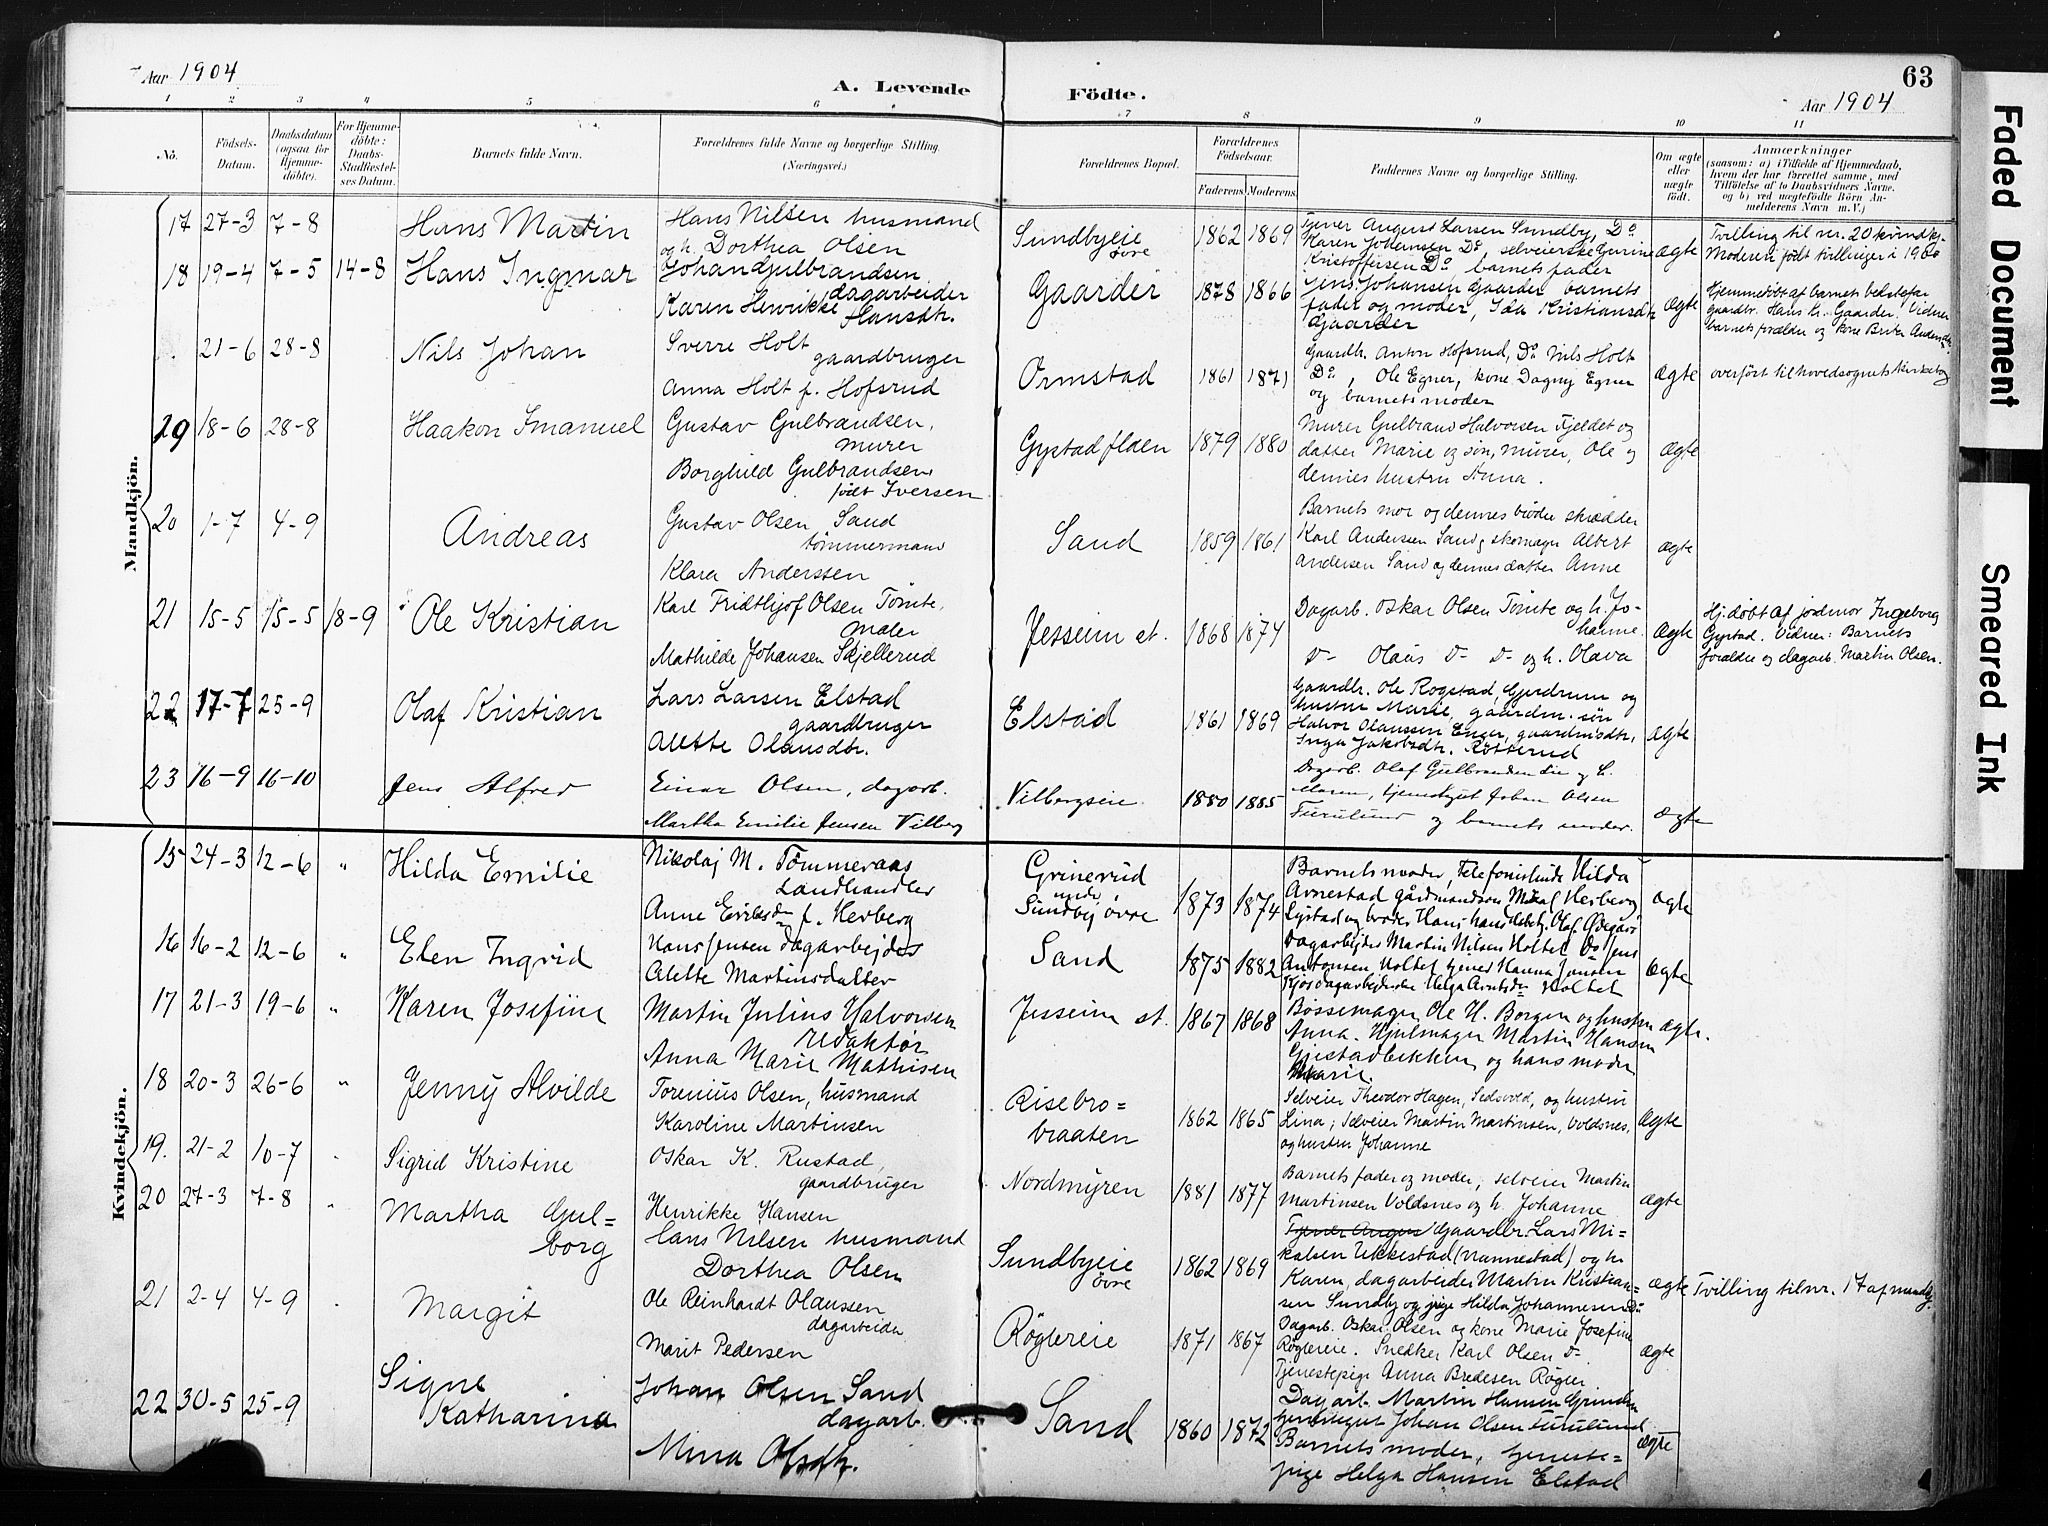 Aar 1904
A. Levende Födte.
63
Aar 1904
1 2 3 4 5 6 7 8 9 10 11
No.
Födsels-Datum.
Daabsdatum (ogsaa for Hjemme-döbte).
For Hjemme-döbte: Daabs-Stadfæstel-ses Datum.
Barnets fulde Navn.
Forældrenes fulde Navne og borgerlige Stilling. (Næringsvei.)
Forældrenes Bopæl.
Forældrenes Födselsaar.
Faderens. Moderens.
Faddernes Navne og borgerlige Stilling.
Om ægte eller uægte födt.
Anmærkninger
(saasom: a) i Tilfælde af Hjemmedaab,
hvem der har forrettet samme, med
Tilföielse af to Daabsvidners Navne.
og b) ved uægtefödte Börn An-
melderens Navn m. V.)
Mandkjön.
17 27-3 7-8 Hans Martin
Hans Nilsen husmand
og h. Dorthea Olsen
Sundbyeie øvre
1862 1869
Tjener August Larsen Sundby, Do
Karen Johansen Do, selveierske Gurine
Kristoffersen Do barnets fader
ægte
Tvilling til nr. 20 kvindkj.
Moderen født tvillinger i 1900
18 19-4 7-5 14-8 Hans Ingmar
Johan Gulbrandsen
dagarbeider
Karen Henrikke Hansdtr.
Gaarder
1878 1866
Jens Johansen Gaarder barnets
fader og moder, Ida Kristiansdtr
Gaarder
Ægte
Hjemmedøbt af barnets bedstefar
gaardbr. Hans Kr. Gaarder. Vidner
barnets forældre og kone Berte Andersdtr.
21-6 28-8 Nils Johan
Sverre Holt
gaardbruger
Anna Holt f. Hofsrud
Ormstad
1861 1871
Gaardbr. Anton Hofsrud, Do Nils Holt
Do, Ole Egner, kone Dagny Egner
og barnets moder
Ægte
overført til hovedsognets kirkebog
29 18-6 28-8 Haakon Imanuel
Gustav Gulbrandsen,
murer
Borghild Gulbrandsen
født Iversen
Gystadflaen
1879 1880
Murer Gulbrand Halvorsen Fjeldet og
datter Marie og søn, murer, Ole og
dennes hustru Anna.
Ægte
20 1-7 4-9 Andreas
Gustav Olsen Sand
tømmermand
Klara Anderssen
Sand
1859 1861
Barnets mor og dennes brødre skrædder
Karl Andersen Sand, skomager Albert
Andersen Sand og dennes datter Anne
ægte
21 15-5 15-5 18-9 Ole Kristian
Karl Fridthjof Olsen Tømte,
maler
Mathilde Johansen Skjellerud
Jessheim st.
1868 1874
Dagarb. Oskar Olsen Tømte og h. Jo-
hanne.
D- Olaus D- D- og h. Olava
Ægte
Hj.døbt af jordmor Ingeborg
Gystad. Vidner: Barnets
forældre og dagarb. Martin Olsen.
22 17-7 25-9 Olaf Kristian
Lars Larsen Elstad
gaardbruger
Alette Olausdtr.
Elstad
1861 1869
Gaardbr. Ole Rogstad, Gjerdrum og
hustru Marie, gaardm. søn
Halvor Olaussen Enger, gaardmdtr,
Inga Jakobsdtr. Røtterud
ægte
23 16-9 16-10 Jens Alfred
Einar Olsen, dagarb.
Martha Emilie Jensen Vilberg
Vilbergseie
1880 1885
Dagarb. Olaf Gulbrandsen Lie og h.
Maren, tjenestegut Johan Olsen
Furulund og barnets moder.
ægte
Kvindekjön.
15 24-3 12-6 " Hilda Emilie
Nikolaj M. Tømmeraas
Landhandler
Anne Eriksdtr f. Herberg
Grinerud
nede
Sundby øvre
1873 1874
Barnets moder, Telefonistinde Hilda
Arnestad gårdmandssøn Herberg
Lystad og broder Hans
ægte
16 16-2 12-6 " Elen Ingrid
Hans Jensen dagarbejder
Alette Martinsdatter
Sand
1875 1882
Dagarbejder Martin Nilsen Holtet Do Jens
Antonsen Holtet tjener Hanna Jensen
Holtet
Ægte
17 21-3 19-6 " Karen Josefine
Martin Julius Halvorsen
redaktør
Anna Marie Mathisen
Jessheim st.
1867 1868
Bøssemager Ole H. Borgen og hustru
Anna. Hjulmager Martin Hansen
Gjestadbekken og hans moder
Marie
ægte.
18 20-3 26-6 " Jenny Alvilde
Torenius Olsen, husmand
Karoline Martinsen
Risebro-
braaten
1862 1865
Selveier Theodor Hagen, Sedsvold, og hustru
Lina; Selveier Martin Martinsen, Voldsnes,
og hustru Johanne
Ægte
19. 21-2 10-7 Sigrid Kristine
Oskar K. Rustad,
gaardbruger
Henrikke Hansen
Nordmyren
1881 1877
Barnets fader og moder, selveier Martin
Martinsen Voldsnes og h. Johanne
ægte
20 27-3 7-8 Martha Gul=
borg
Hans Nilsen husmand
Dorthea Olsen
Sundbyeie
øvre
1862 1869
Tjener August Gaardbr. Lars Mi-
kalsen Ukkestad (Nannestad) og h.
Karen, dagarbeider Martin Kristian-
sen Sundby og pige Hilda Johannesen Do
ægte
Tvilling til nr. 17 af mandkj.
21 2-4 4-9 Margit
Ole Reinhardt Olaussen
dagarbeider
Marit Pedersen
Røglereie
1871 1867
Dagarb. Oskar Olsen og kone Marie Josefine
Røglereie. Snedker Karl Olsen D-
Tjenestepige Anna Bredesen Røgler
ægte
22 30-5 25-9 Signe
Katharina
Johan Olsen Sand
dagarb.
Mina Olsdtr.
Sand
1860 1872
Dagarb. Martin Hansen
tjenestegut Johan Olsen Furulund
Barnets moder, tjeneste=
pige Helga Hansen Elstad
ægte
Faded Document
Smeared Ink